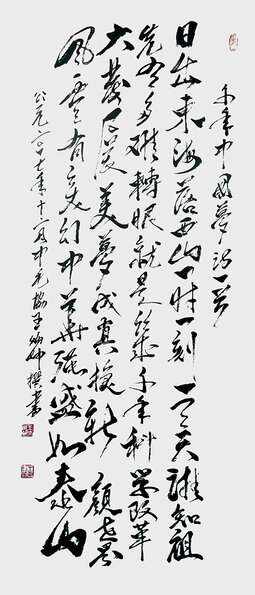 千年中国夢诗一首
日出東海落西山一时一刻一天誰知祖
先有多難轉眼就是幾千年科学改革
大發展美夢成真換新顔世界
風雲有变幻中華強盛如泰山
公元二〇一七年十二月中
撰書